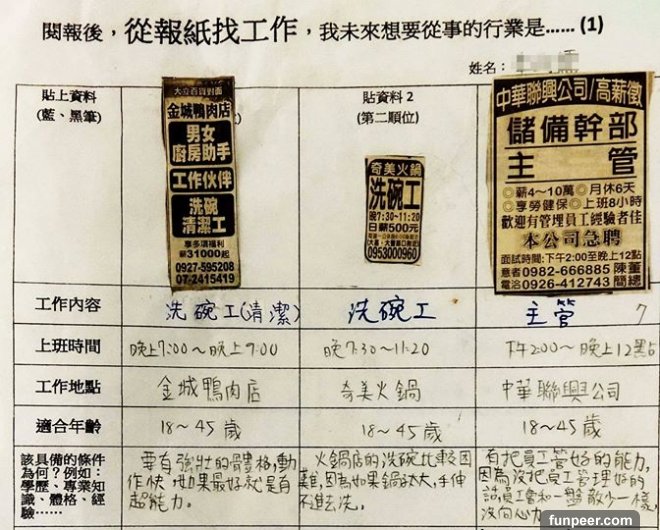 閱報後，從報紙找工作，我未來想要從事的行業是......(1)
姓名：
貼上資料
(藍、黑筆)
大立百貨對面
金城鴨肉店
男女
廚房助手
工作伙伴
洗碗
清潔工
享多項福利
薪31000起
0927-595208
07-2415419
貼資料2
(第二順位)
奇美火鍋
洗碗工
晚7:30~11:20
日薪500元
0953000960
中華聯興公司/高薪徵
儲備幹部
主管
◎薪4~10萬◎月休6天
◎享勞健保◎上班8小時
歡迎有管理員工經驗者佳
本公司急聘
面試時間:下午2:00至晚上12點
意者0982-666885陳董
電洽0926-412743簡總
工作內容
洗碗工(清潔)
洗碗工
主管
7
上班時間
晚上7:00~晚上9:00
晚7:30~11:20
下午2:00~晚上12點
工作地點
金城鴨肉店
奇美火鍋
中華聯興公司
適合年齡
18~45歲
18~45歲
18~45歲
該具備的條件
為何？例如：
學歷、專業知
識、體格、經
驗......
要有強壯的體格,動
作快,如果最好就是有
超能力。
火鍋店的洗碗比較困
難,因為如果鍋太大,手伸
不進去洗。
有把員工管好的能力,
因為沒把員工管理好的
話,員工會和一盤散沙一樣,
沒向心力
funpeer.com